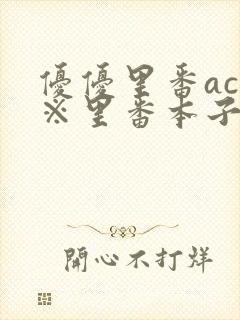 優優里番ac
※里番本子
開心不打烊